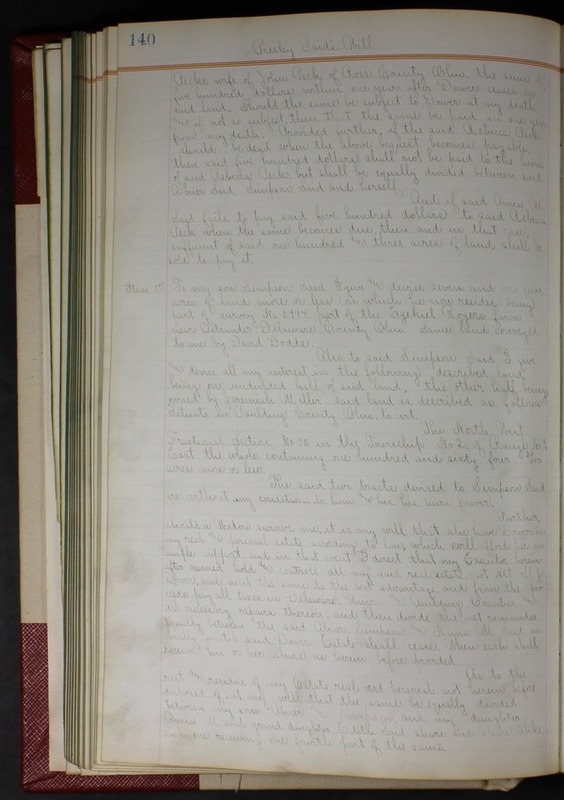 140
Presley Said's Will
wife of John Peck of Ross County Ohio, the sum of
five hundred dollars within one year after Dower ceases on
said land. Should the same be subject to Dower at my death,
& if not so subject, then that the same be paid in one year
from my death. Provided further, if the said Peck
should be dead when the above bequest becomes payable,
then said five hundred dollars shall not be paid to the heirs
of said Peck but shall be equally divided between said
Abner Said Simpson Said and herself.
And if said Annis M.
Said fails to pay said five hundred dollars to said
Peck when the same becomes due, then and in that case
sufficient of said one hundred & three acres of land shall be
sold to pay it.
Item 5th To my son Simpson Said I give & devise seven and one
acres of land more or less on which he now resides being
part of survey No. part of the Ezekiel Rogers farm
near Ostrander Delaware County Ohio. Same land conveyed
to me by David Dodds.
Also to said Simpson Said I give
& devise all my interest in the following described land
being one undivided half of said land, the other half being
owned by Jeremiah Miller. said land is described as follows
Situate in Paulding County Ohio, to wit.
The North West
Fractional Section No 30 in the Township No 2, of Range No
East the whole containing one hundred and sixty four
acres more or less.
The said two tracts devised to Simpson Said
are without any conditions to him &
Further,
should a Widow survive me, it is my will that she have
my real & personal estate according to law, which will afford her an
ample support, and in that event I direct that my Executor herein
after named hold & control all my said real estate,
Dower, and rent the same to the best advantage and from the
pay all taxes in Delaware, & Paulding Counties &
all necessary repairs thereon, and then divide the net remainder
equally between the said Abner, Simpson & Annis M. Said
until said Dower Estate shall cease. Then each shall
receive his or her share as herein before provided.
As to the
rest & residue of my Estate real and personal not herein before
devised it is my will that the same be equally divided
between my sons Abner & Simpson and my daughter
Annis M. and grand daughter Said share and share alike
each one receiving one fourth part of the same.